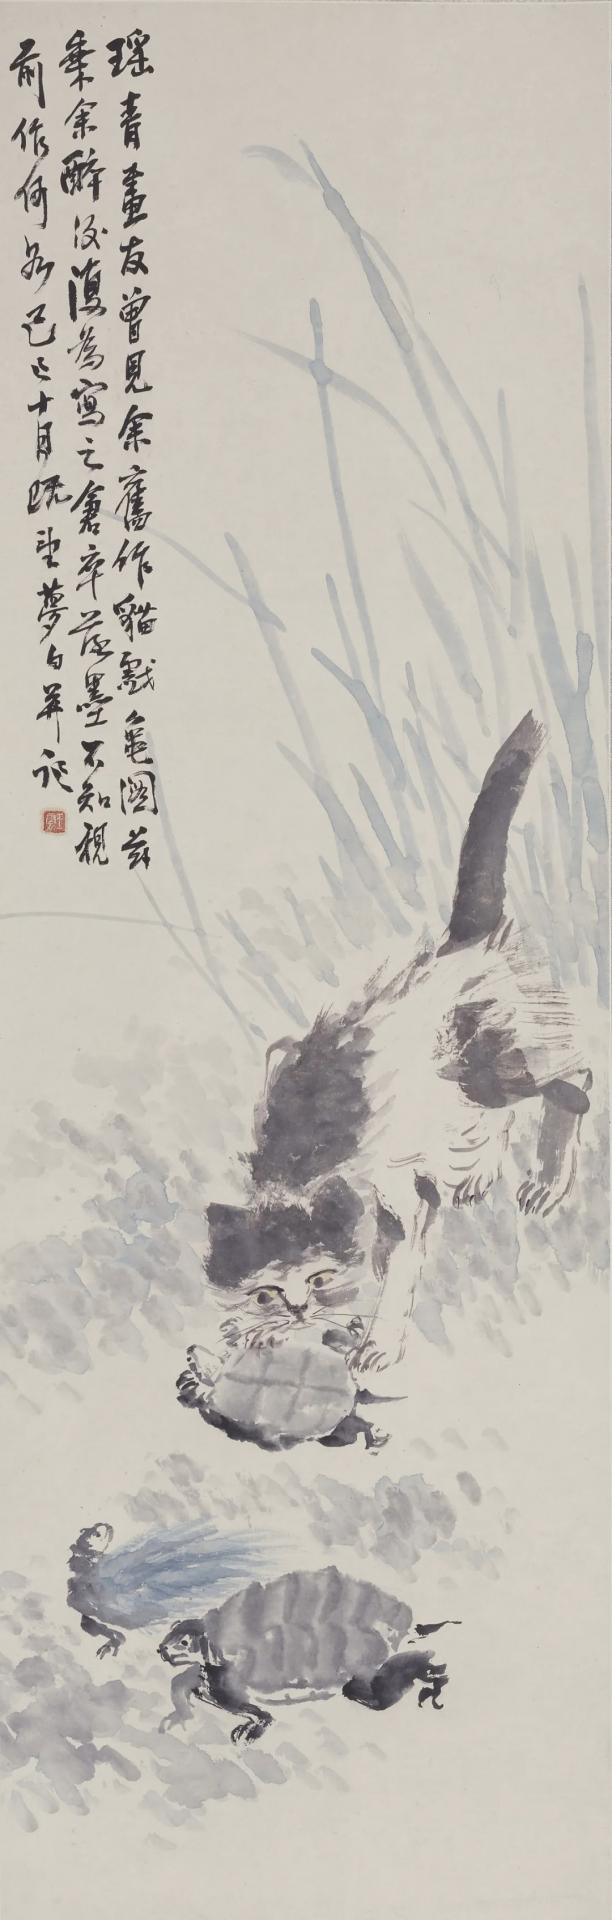 瑶青畫友曾見余舊作貓戲龜圖茲
乘余醉後復為寫之倉卒落墨不知視
前作何如己巳十月既望夢白并識